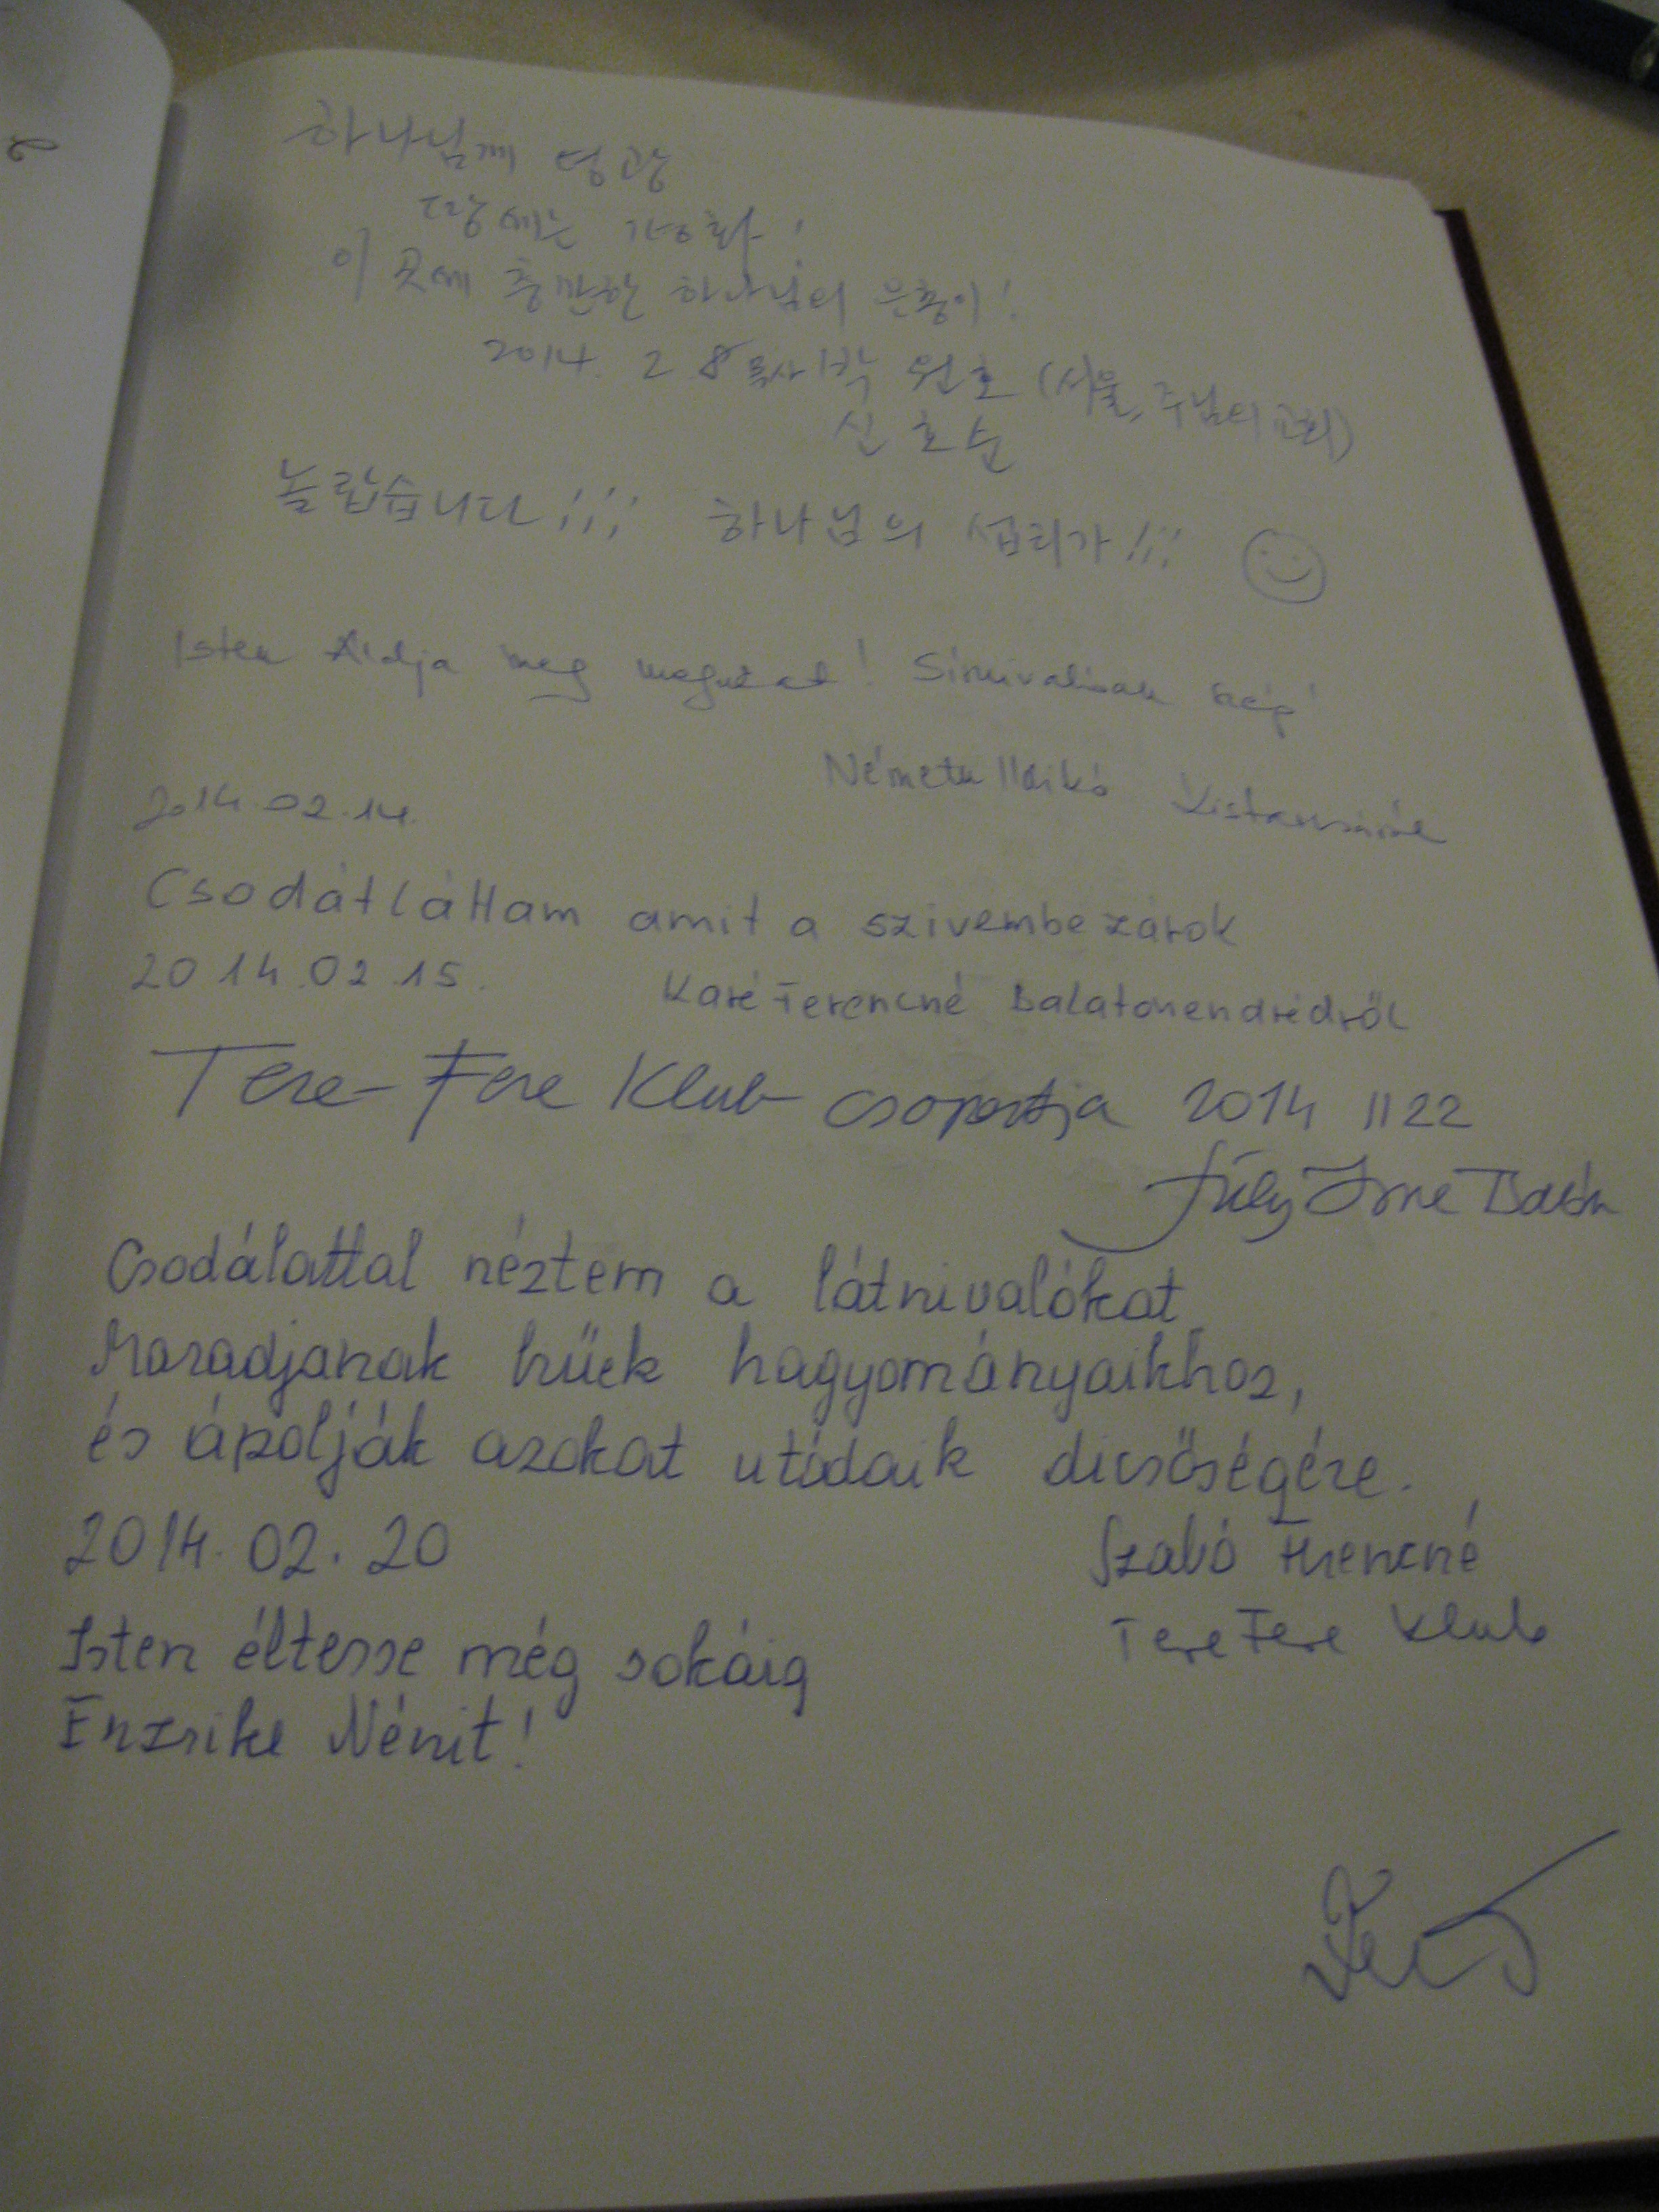 하나님께 영광
땅에는 평화!
이 곳에 충만한 하나님의 은총이!
2014. 2. 8 목사 박 원호 (서울, 주님의교회)
신 호순
놀랍습니다!!! 하나님의 섭리가!!!
Isten Áldja meg magukat! Szép
Németh Ildikó
2014.02.14.
Csodát láttam amit a szivembe zárok
2014.02.15. Karé Ferencné Balatonendrédről
Tere-Fere Klub csoportja 2014 II 22
Imre
Csodálattal néztem a látnivalókat
Maradjanak hűek hagyományaikhoz,
és ápolják azokat utódaik dicsőségére.
2014. 02. 20 Szabó Ferencné
Isten éltesse még sokáig Tere Fere Klub
Erzsike Nénit!